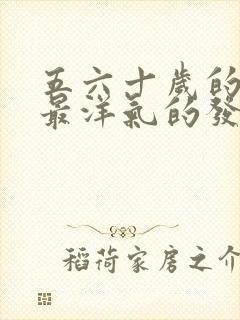 五六十歲的
最洋氣的發
稻荷家房之介